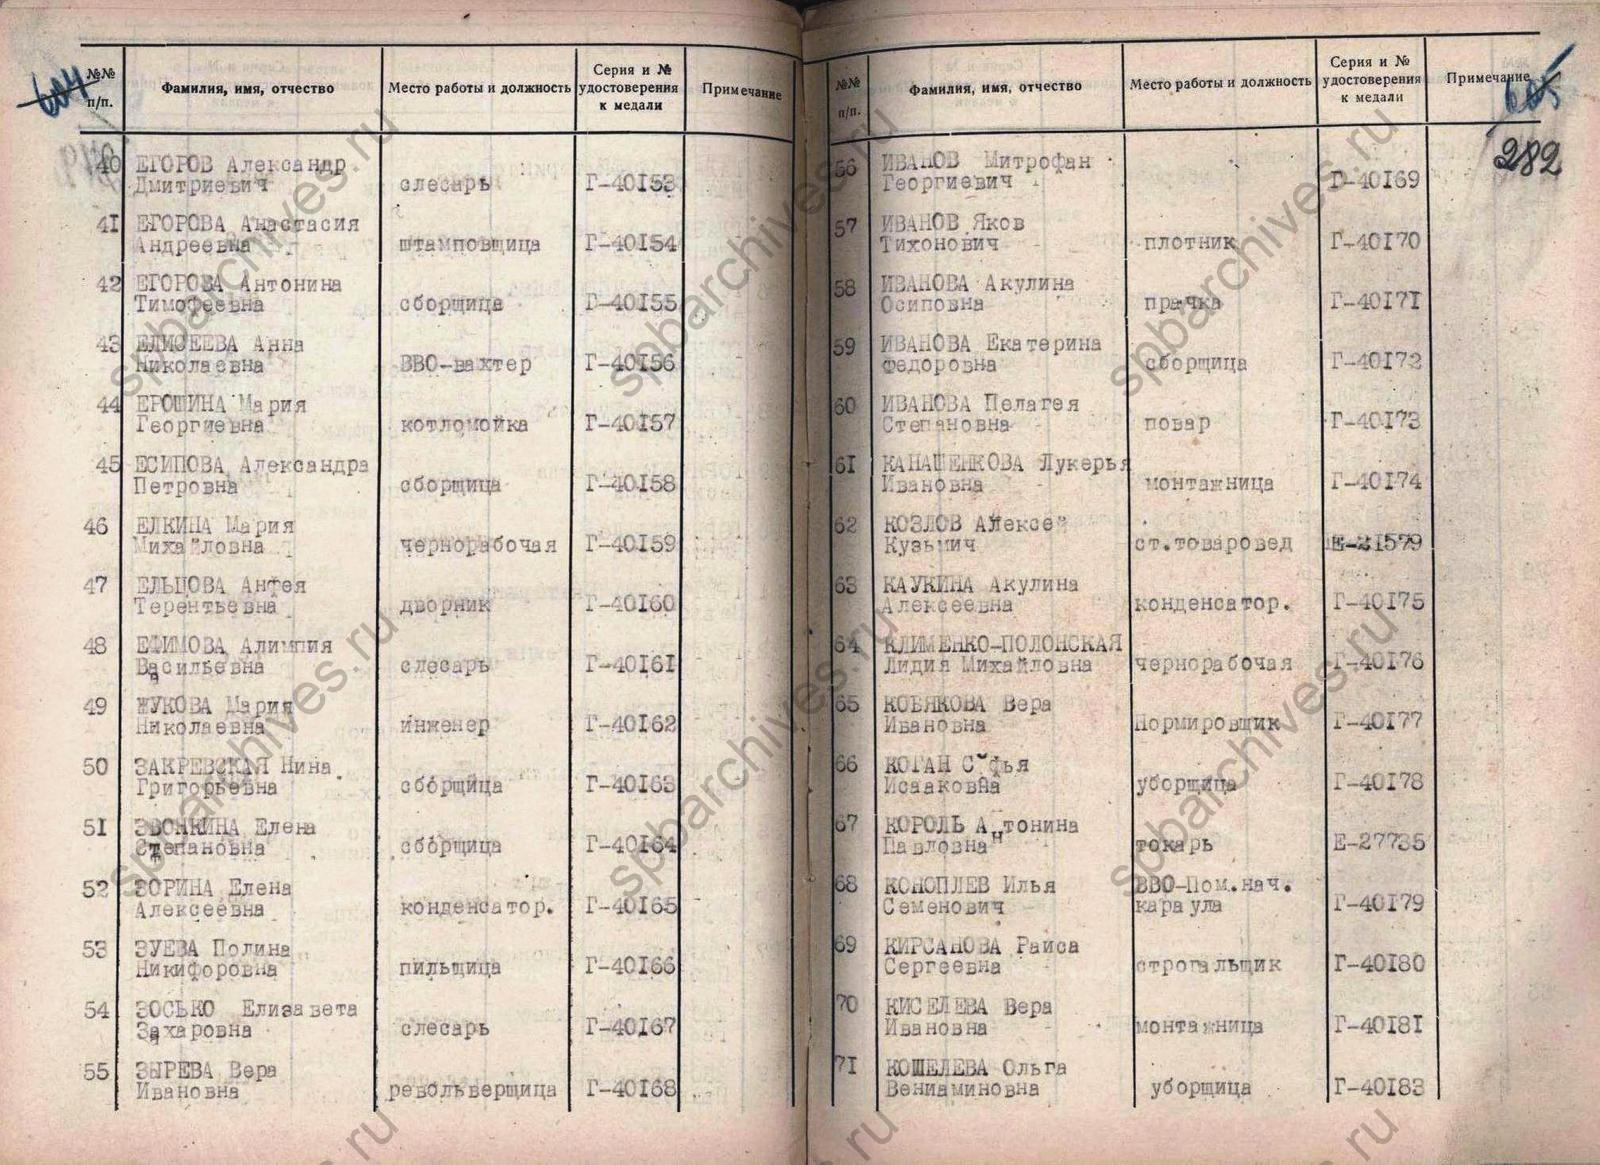 604
№№ п/п. Фамилия, имя, отчество Место работы и должность Серия и № удостоверения к медали Примечание
40 ЕГОРОВ Александр
Дмитриевич слесарь Г-40153
41 ЕГОРОВА Анастасия
Андреевна штамповщица Г-40154
42 ЕГОРОВА Антонина
Тимофеевна сборщица Г-40155
43 ЕЛИСЕЕВА Анна
Николаевна ВВО-вахтер Г-40156
44 ЕРОШИНА Мария
Георгиевна котломойка Г-40157
45 ЕСИПОВА Александра
Петровна сборщица Г-40158
46 ЕЛКИНА Мария
Михайловна чернорабочая Г-40159
47 ЕЛЬЦОВА Анфея
Терентьевна дворник Г-40160
48 ЕФИМОВА Алимпия
Васильевна слесарь Г-40161
49 ЖУКОВА Мария
Николаевна инженер Г-40162
50 ЗАКРЕВСКАЯ Нина
Григорьевна сборщица Г-40163
51 ЗВОНКИНА Елена
Степановна сборщица Г-40164
52 ЗОРИНА Елена
Алексеевна конденсатор. Г-40165
53 ЗУЕВА Полина
Никифоровна пильщица Г-40166
54 ЗОСЬКО Елизавета
Захаровна слесарь Г-40167
55 ЗЫРЕВА Вера
Ивановна револьверщица Г-40168
№№ п/п. Фамилия, имя, отчество Место работы и должность Серия и № удостоверения к медали Примечание
605
282
56 ИВАНОВ Митрофан
Георгиевич Г-40169
57 ИВАНОВ Яков
Тихонович плотник Г-40170
58 ИВАНОВА Акулина
Осиповна прачка Г-40171
59 ИВАНОВА Екатерина
Федоровна сборщица Г-40172
60 ИВАНОВА Пелагея
Степановна повар Г-40173
61 КАНАШЕНКОВА Лукерья
Ивановна монтажница Г-40174
62 КОЗЛОВ Алексей
Кузьмич ст.товаровед Е-21579
63 КАУКИНА Акулина
Алексеевна конденсатор. Г-40175
64 КЛИМЕНКО-ПОЛОНСКАЯ
Лидия Михайловна чернорабочая Г-40176
65 КОБЯКОВА Вера
Ивановна Нормировщик Г-40177
66 КОГАН Софья
Исааковна уборщица Г-40178
67 КОРОЛЬ Антонина
Павловна токарь Е-27735
68 КОНОПЛЕВ Илья ВВО-Пом.нач.
Семенович караула Г-40179
69 КИРСАНОВА Раиса
Сергеевна строгальщик Г-40180
70 КИСЕЛЕВА Вера
Ивановна монтажница Г-40181
71 КОШЕЛЕВА Ольга
Вениаминовна уборщица Г-40183
spbarchives.ru